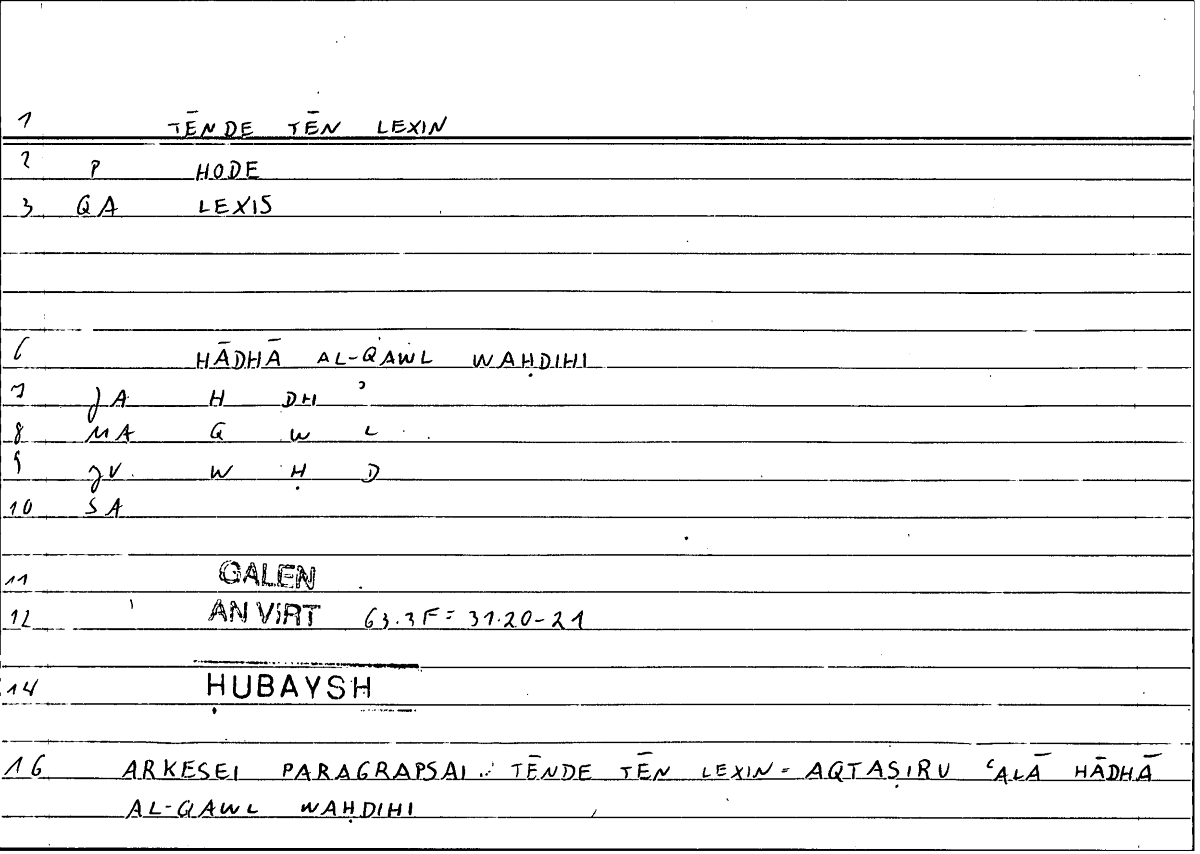 1 TĒNDE TĒN LEXIN
2 P HODE
3 QA LEXIS
6 HĀDHĀ AL-QAWL WAḤDIHI
7 JA H DH ʾ
8 MA Q W L
9 JV W Ḥ D
10 SA
11 GALEN
12 AN VIRT 63.3F = 31.20-21
14 ḤUBAYSH
16 ARKESEI PARAGRAPSAI .: TĒNDE TĒN LEXIN = AQTAṢIRU ʿALĀ HĀDHĀ
AL-QAWL WAḤDIHI